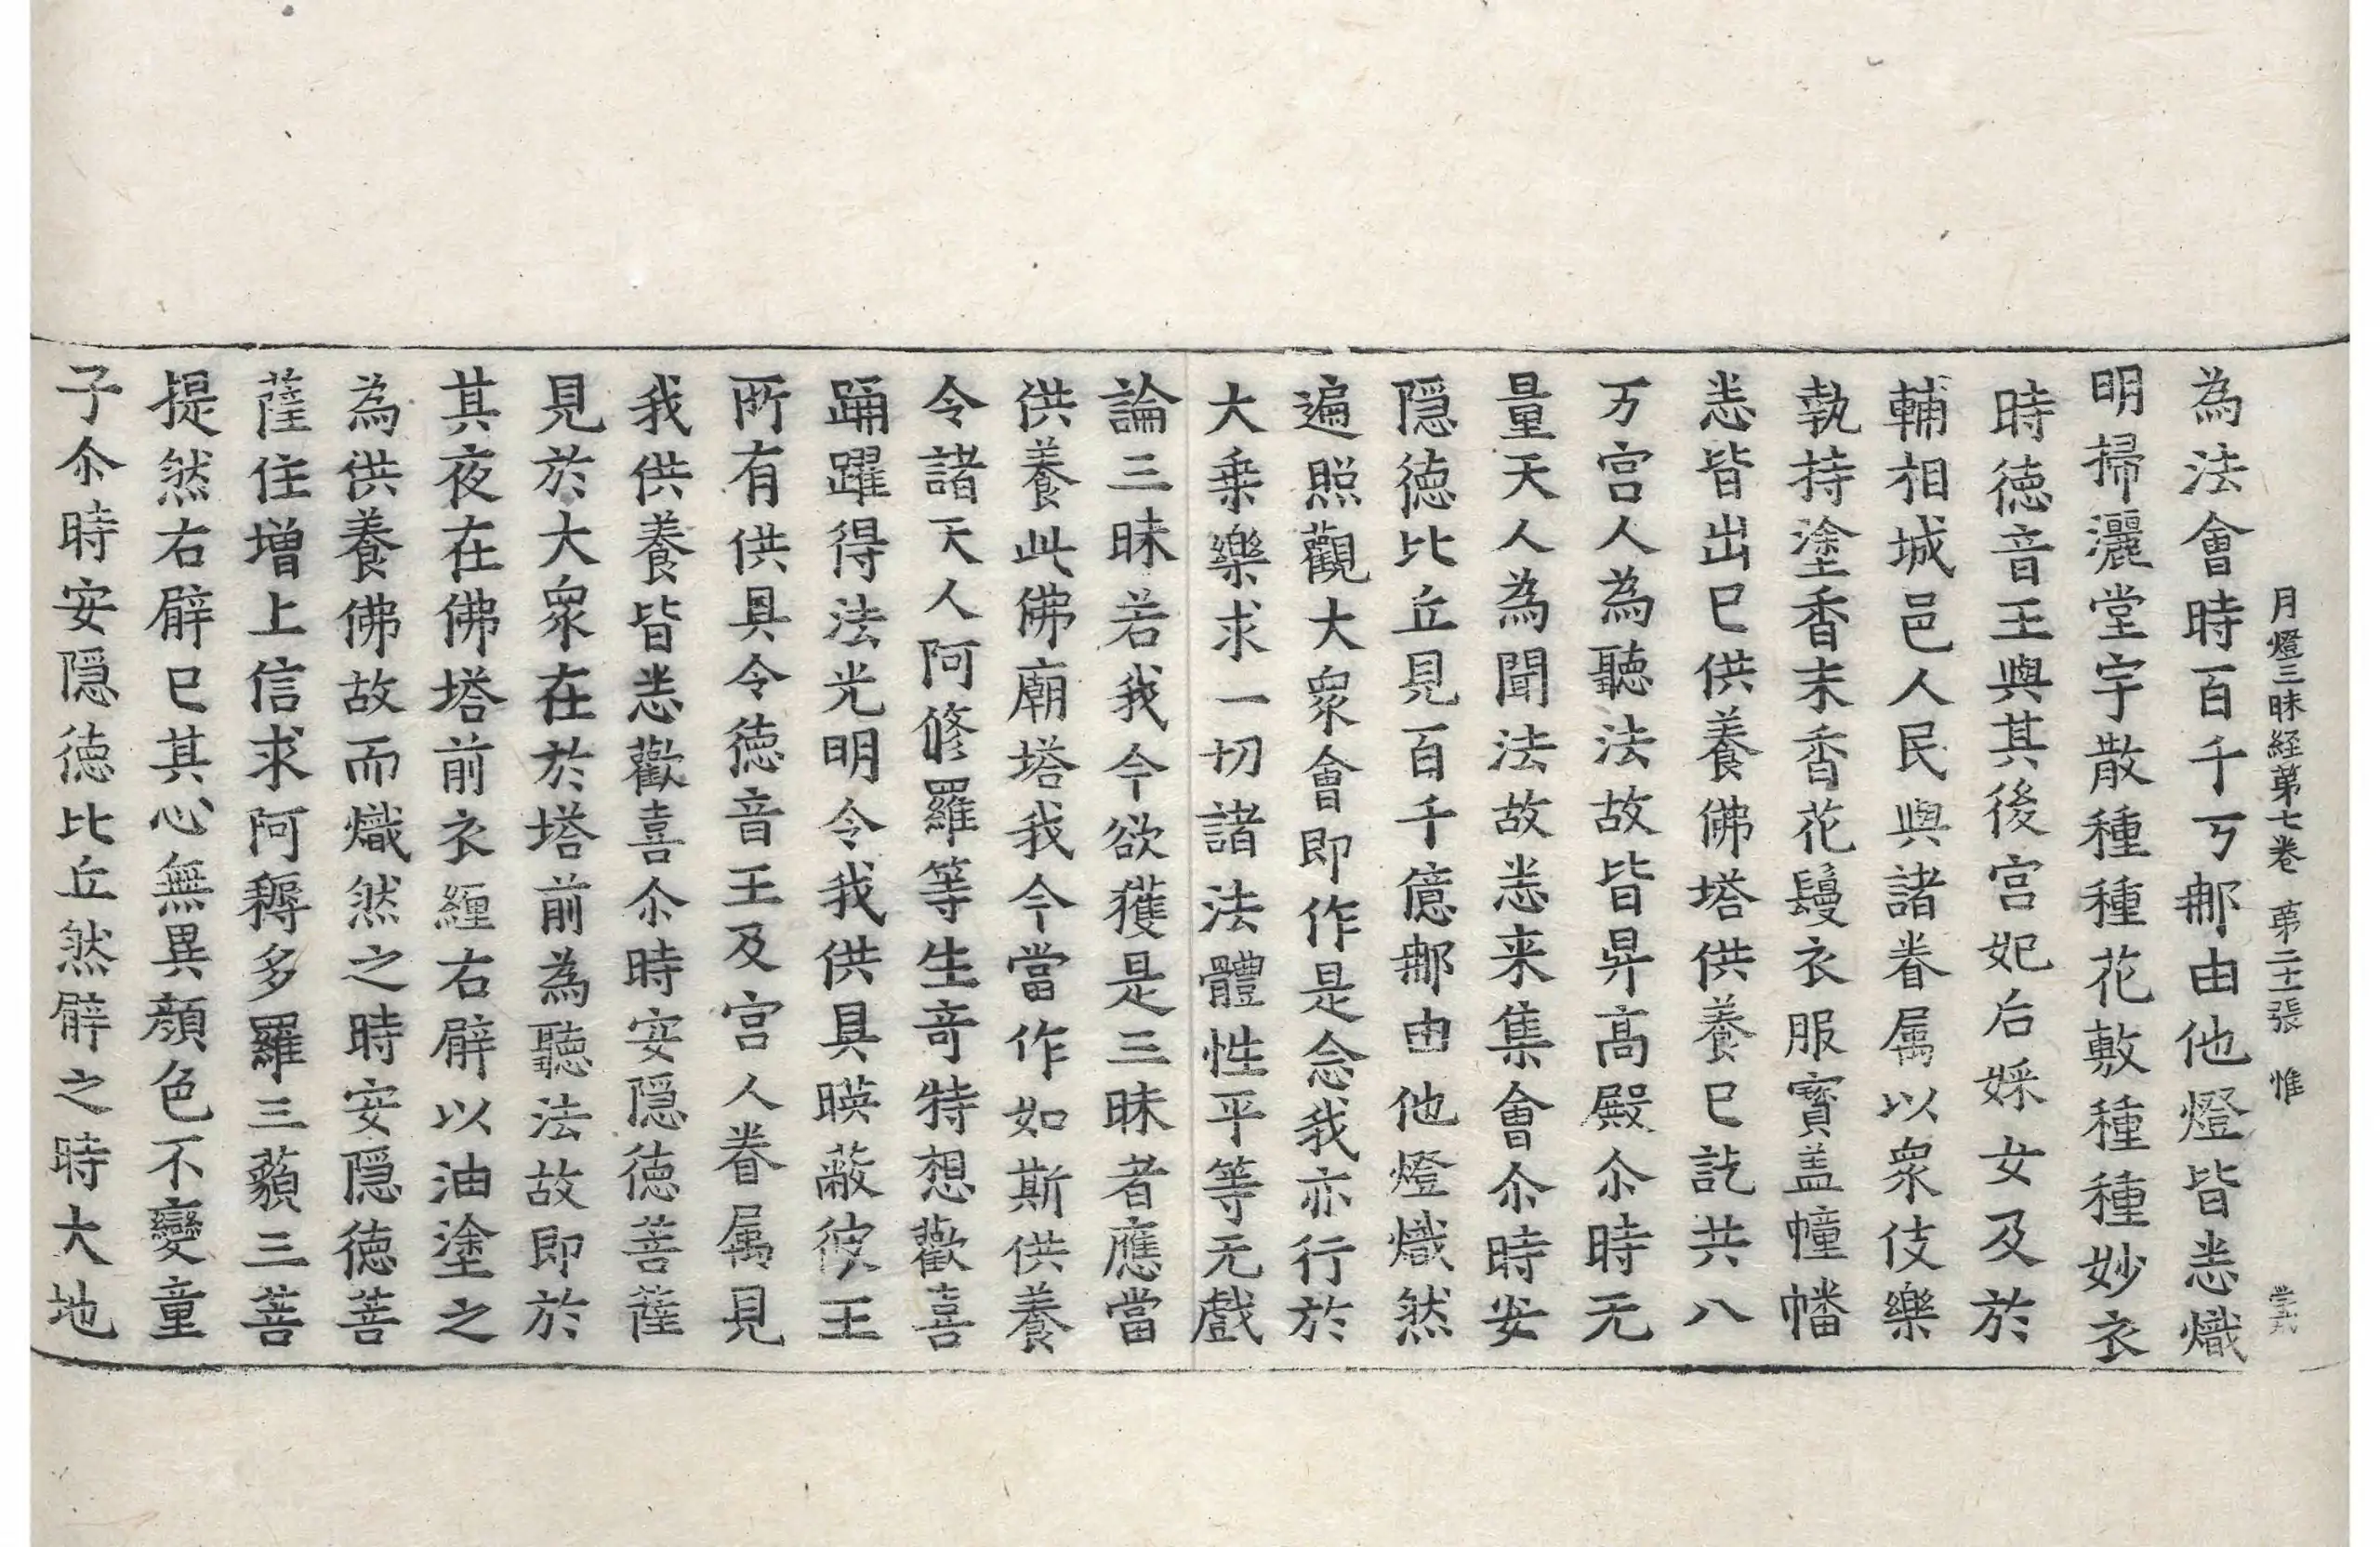 月燈三昧経第七卷 第二十張 惟
為法會時百千丂那由他燈皆悉熾
明掃灑堂宇散種種花敷種種妙衣
時徳音王與其後宫妃后婇女及於
輔相城邑人民與諸眷属以衆伎樂
執持塗香末香花鬘衣服寳盖幢幡
悉皆出已供養佛塔供養已訖共八
万宫人為聽法故皆昇髙殿尒時无
量天人為聞法故悉来集會尒時安
隠徳比丘見百千億那由他燈熾然
遍照觀大衆會即作是念我亦行於
大乗樂求一切諸法體性平等无戲
論三昧若我今欲獲是三昧者應當
供養此佛廟塔我今當作如斯供養
令諸天人阿修羅等生竒特想歡喜
踊躍得法光明令我供具暎蔽彼王
所有供具令徳音王及宫人眷属見
我供養皆悉歡喜尒時安隠徳菩薩
見於大衆在於塔前為聽法故即於
其夜在佛塔前衣纒右臂以油塗之
為供養佛故而熾然之時安隠徳菩
薩住増上信求阿耨多羅三藐三菩
提然右臂已其心無異顔色不變童
子尒時安隠徳比丘然臂之時大地